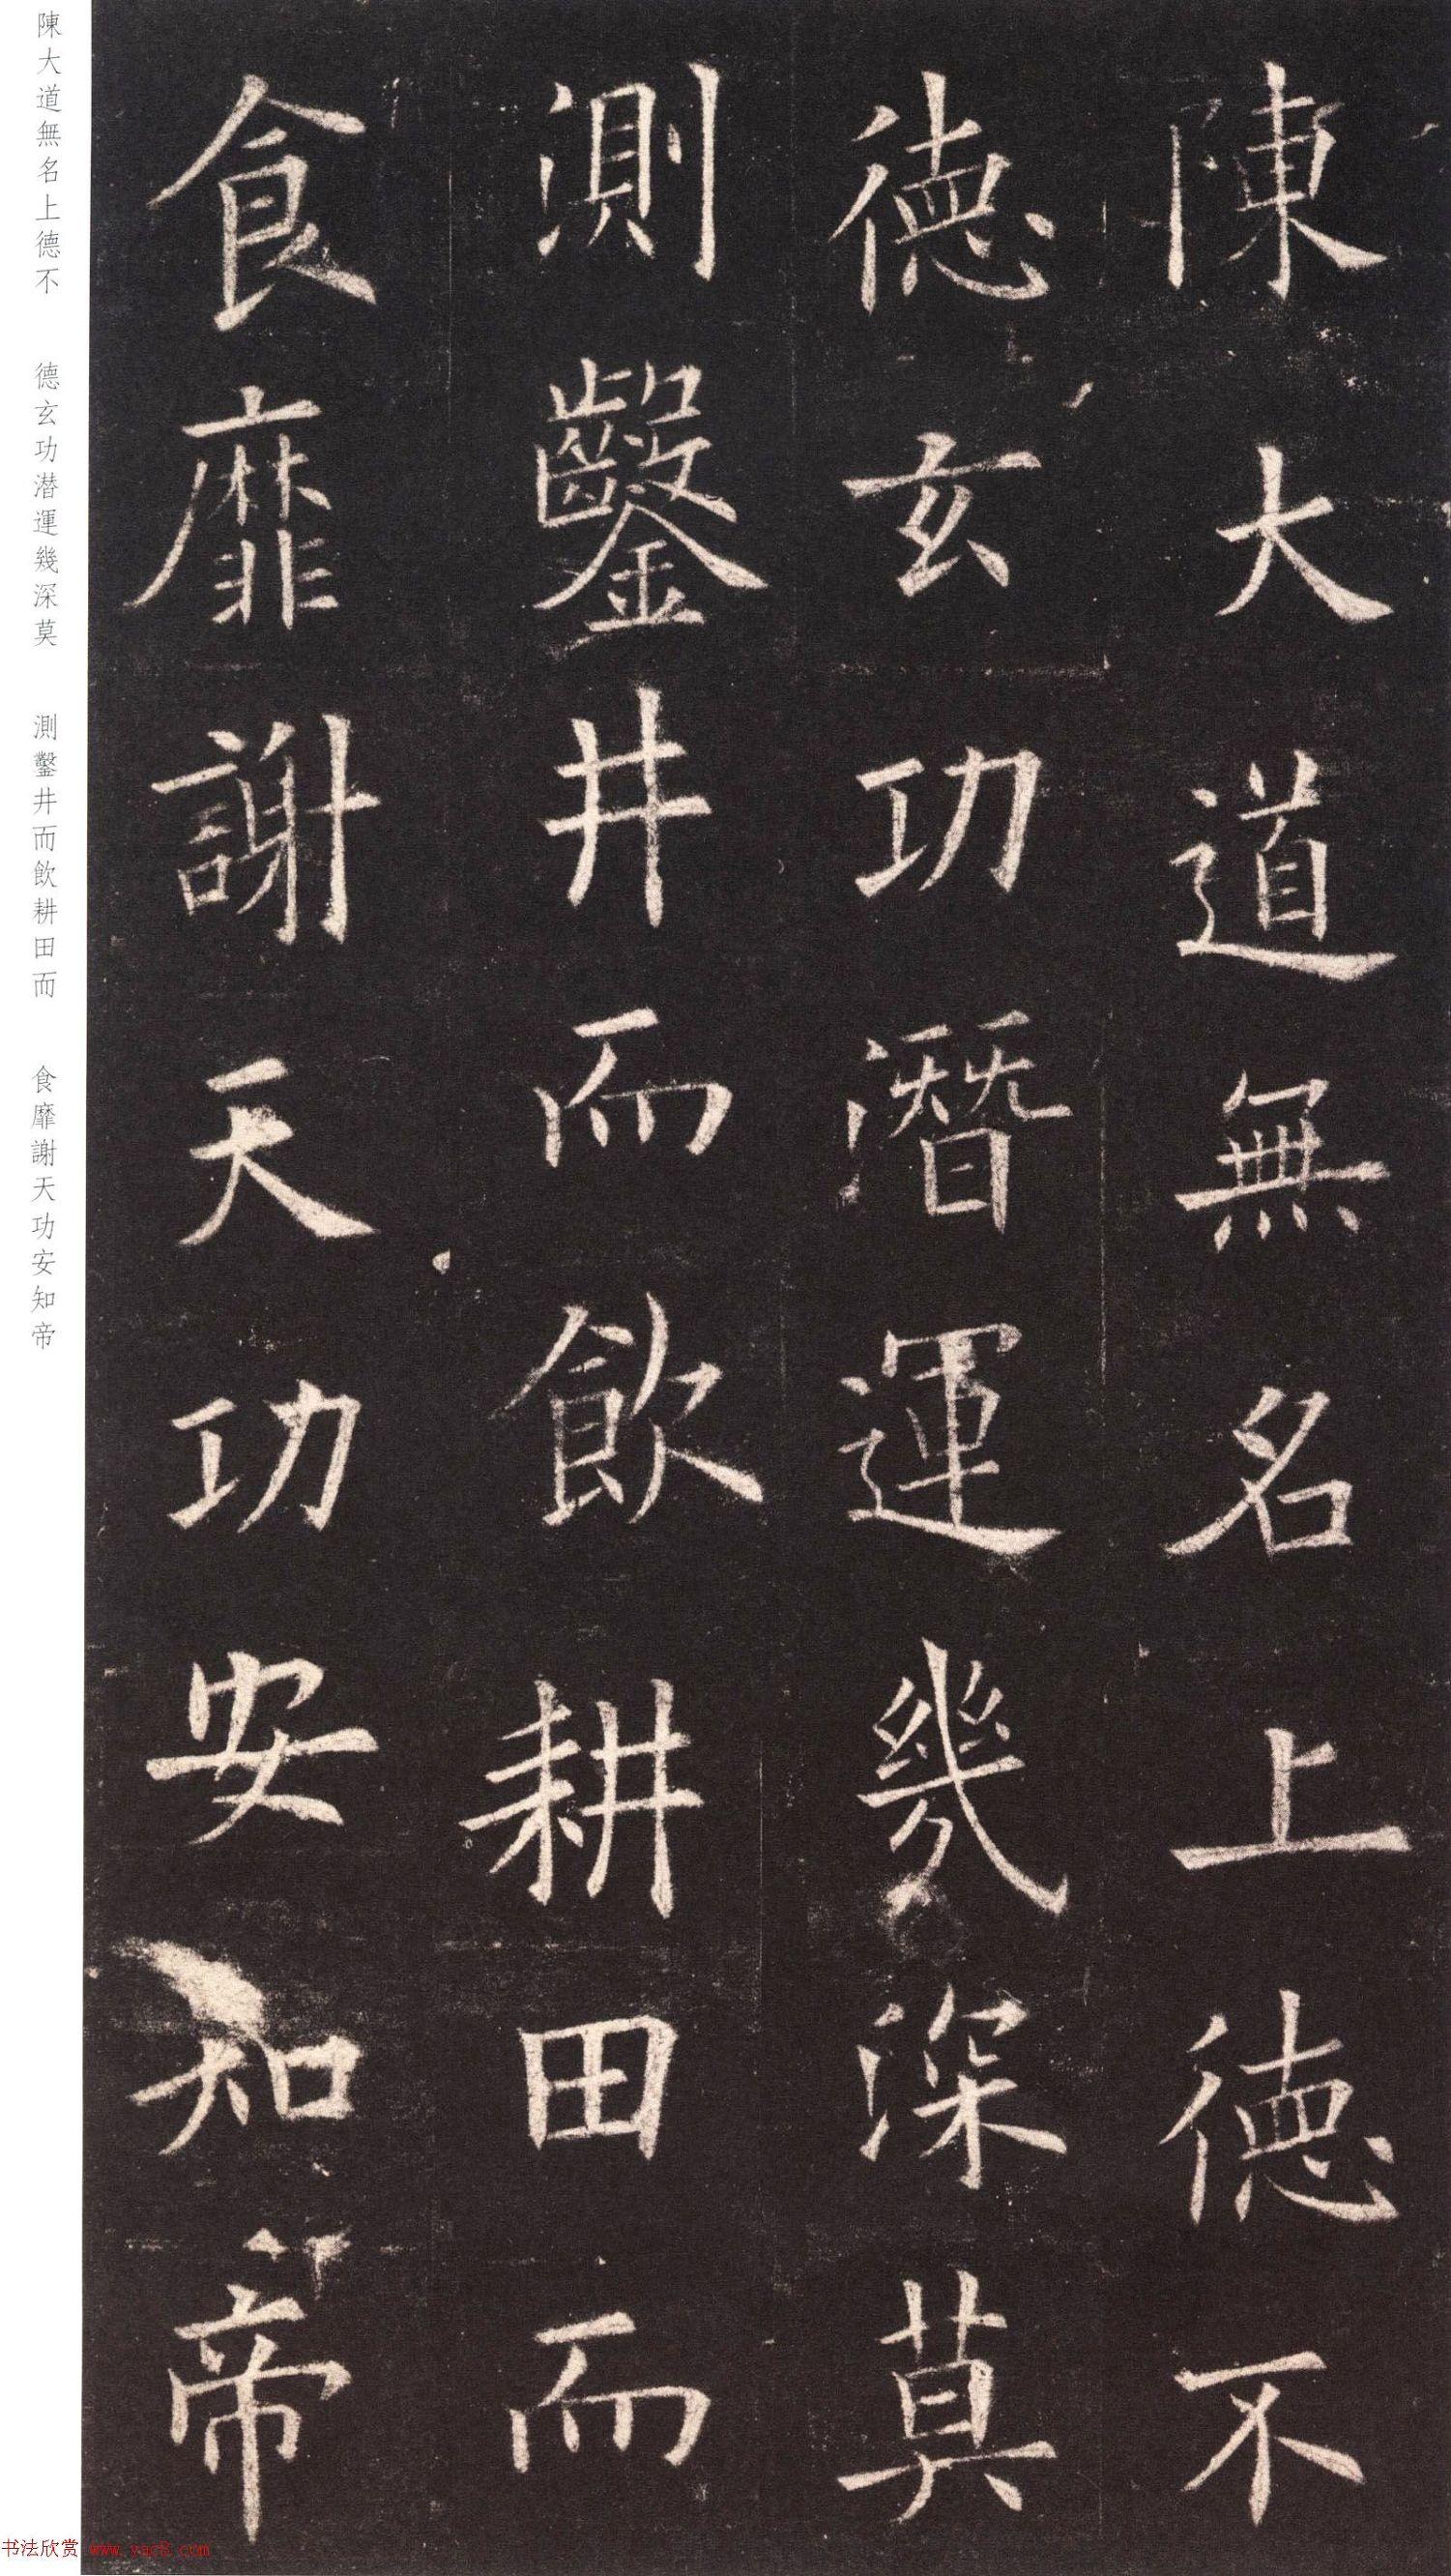 陳大道無名上德不
德玄功潛運幾深莫
測鑿井而飲耕田而
食靡謝天功安知帝
陳大道無名上德不 德玄功潜運幾深莫 測鑿井而飲耕田而 食靡謝天功安知帝
书法欣赏 www.yac8.com